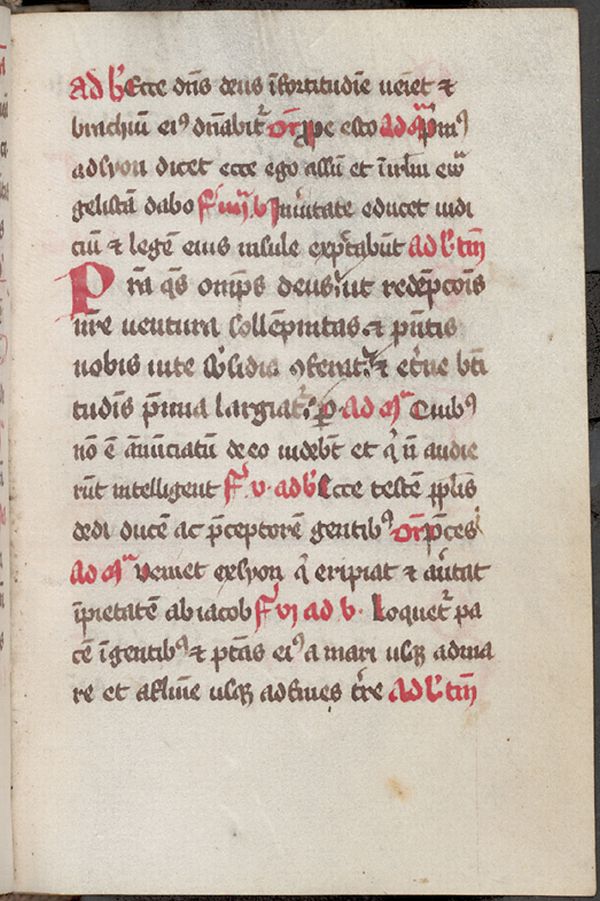 ad b' Ecce dn̄s deus īfortitudīe ueīet ⁊
brachiū ei⁹ dn̄abit᷑ Or̄ ꝓpe esto ad mᵃ p̄m⁹
adsyon dicet ecce ego assū et īirlm̄ ew̄
gelistā dabo fᵃ iiij b' Inuitate educet iudi
ciū ⁊ legē eius insule exp̄tabūt ad b' tm̄
Pr̄a q̄s onīps deus ut redēpcōis
nr̄e uentura sollēpnitas ⁊ p̄ntis
nobis uite sb̓sidia ꝯferat ⁊ et̄ne bt̄i
tudīs p̄mia largiat᷑ ꝑ ad mᵃ Quib⁹
nō ē ānūciatū de eo uidebt̄ et q̄ n̄ audie
rūt intelligent fᵃ v ad b' Ecce testē pp̄lis
dedi ducē ac p̄ceptorē gentib⁹ Or̄ p̄ces
ad mᵃ Veniet exsyon q̄ eripiat ⁊ au̓tat
īpietatē ab iacob fᵃ vj ad b' Loquet᷑ pa
cē īgentib⁹ ⁊ ptās ei⁹ a mari usqꝫ adma
re et afluīe usqꝫ adfines tr̄re ad b' tm̄